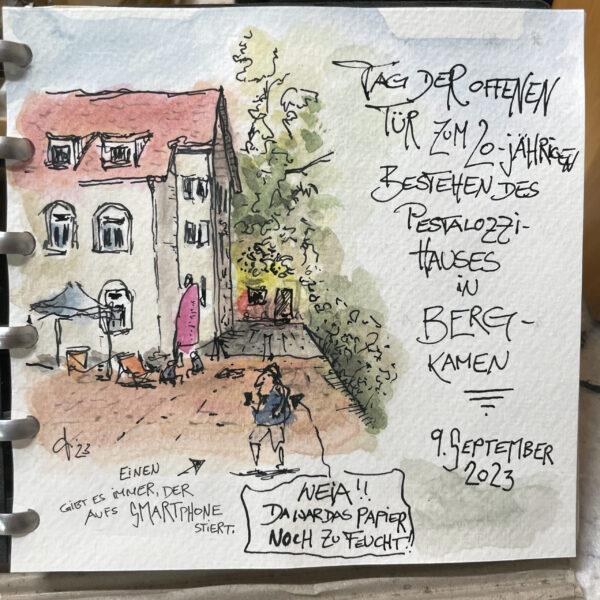 TAG DER OFFENEN
TÜR ZUM 20-JÄHRIGEN
BESTEHEN DES
PESTALOZZI-
HAUSES
in
BERG-
KAMEN
9. SEPTEMBER
2023
'23
EINEN
GIBT ES IMMER, DER
AUFS SMARTPHONE
STIERT.
WEIA!!
DA WAR DAS PAPIER
NOCH ZU FEUCHT!